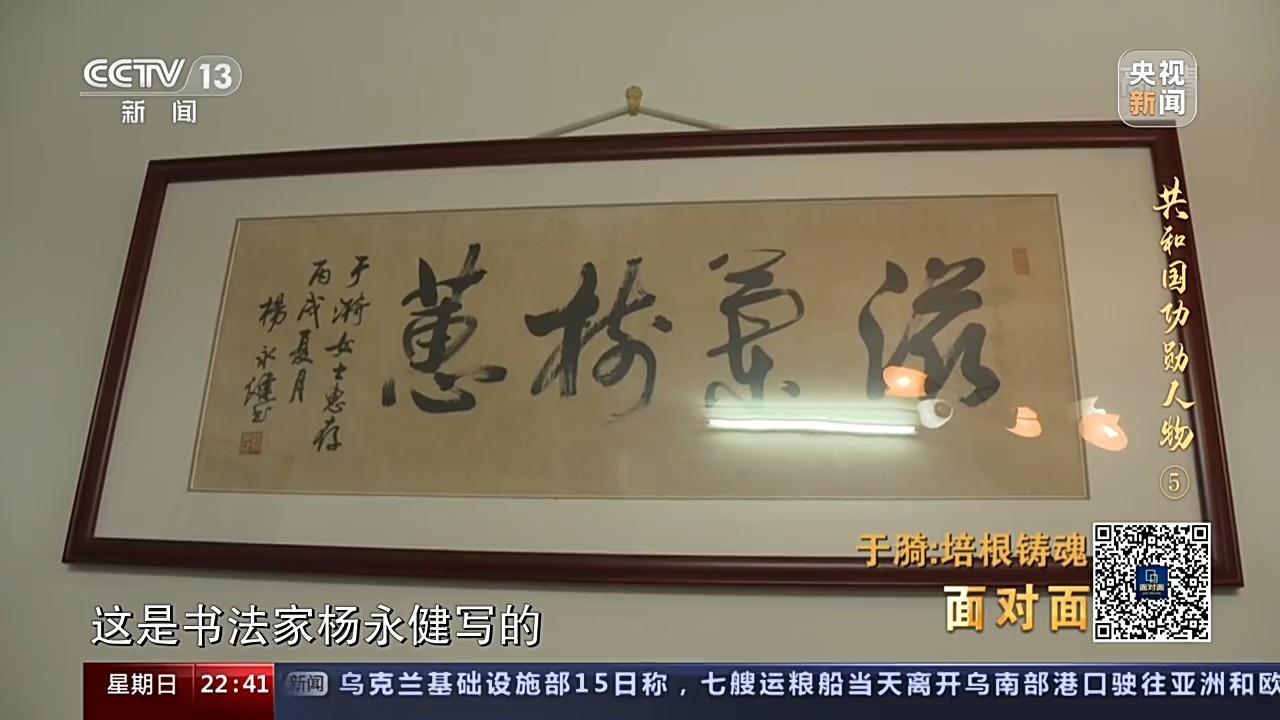 CCTV 13
新闻
央视
新闻
共和国功勋人物⑤
滋蘭樹蕙
于漪女士惠存
丙戌夏月
楊永健书
于漪:培根铸魂
面对面
面对面
这是书法家杨永健写的
星期日 22:41 新闻 乌克兰基础设施部15日称，七艘运粮船当天离开乌南部港口驶往亚洲和欧